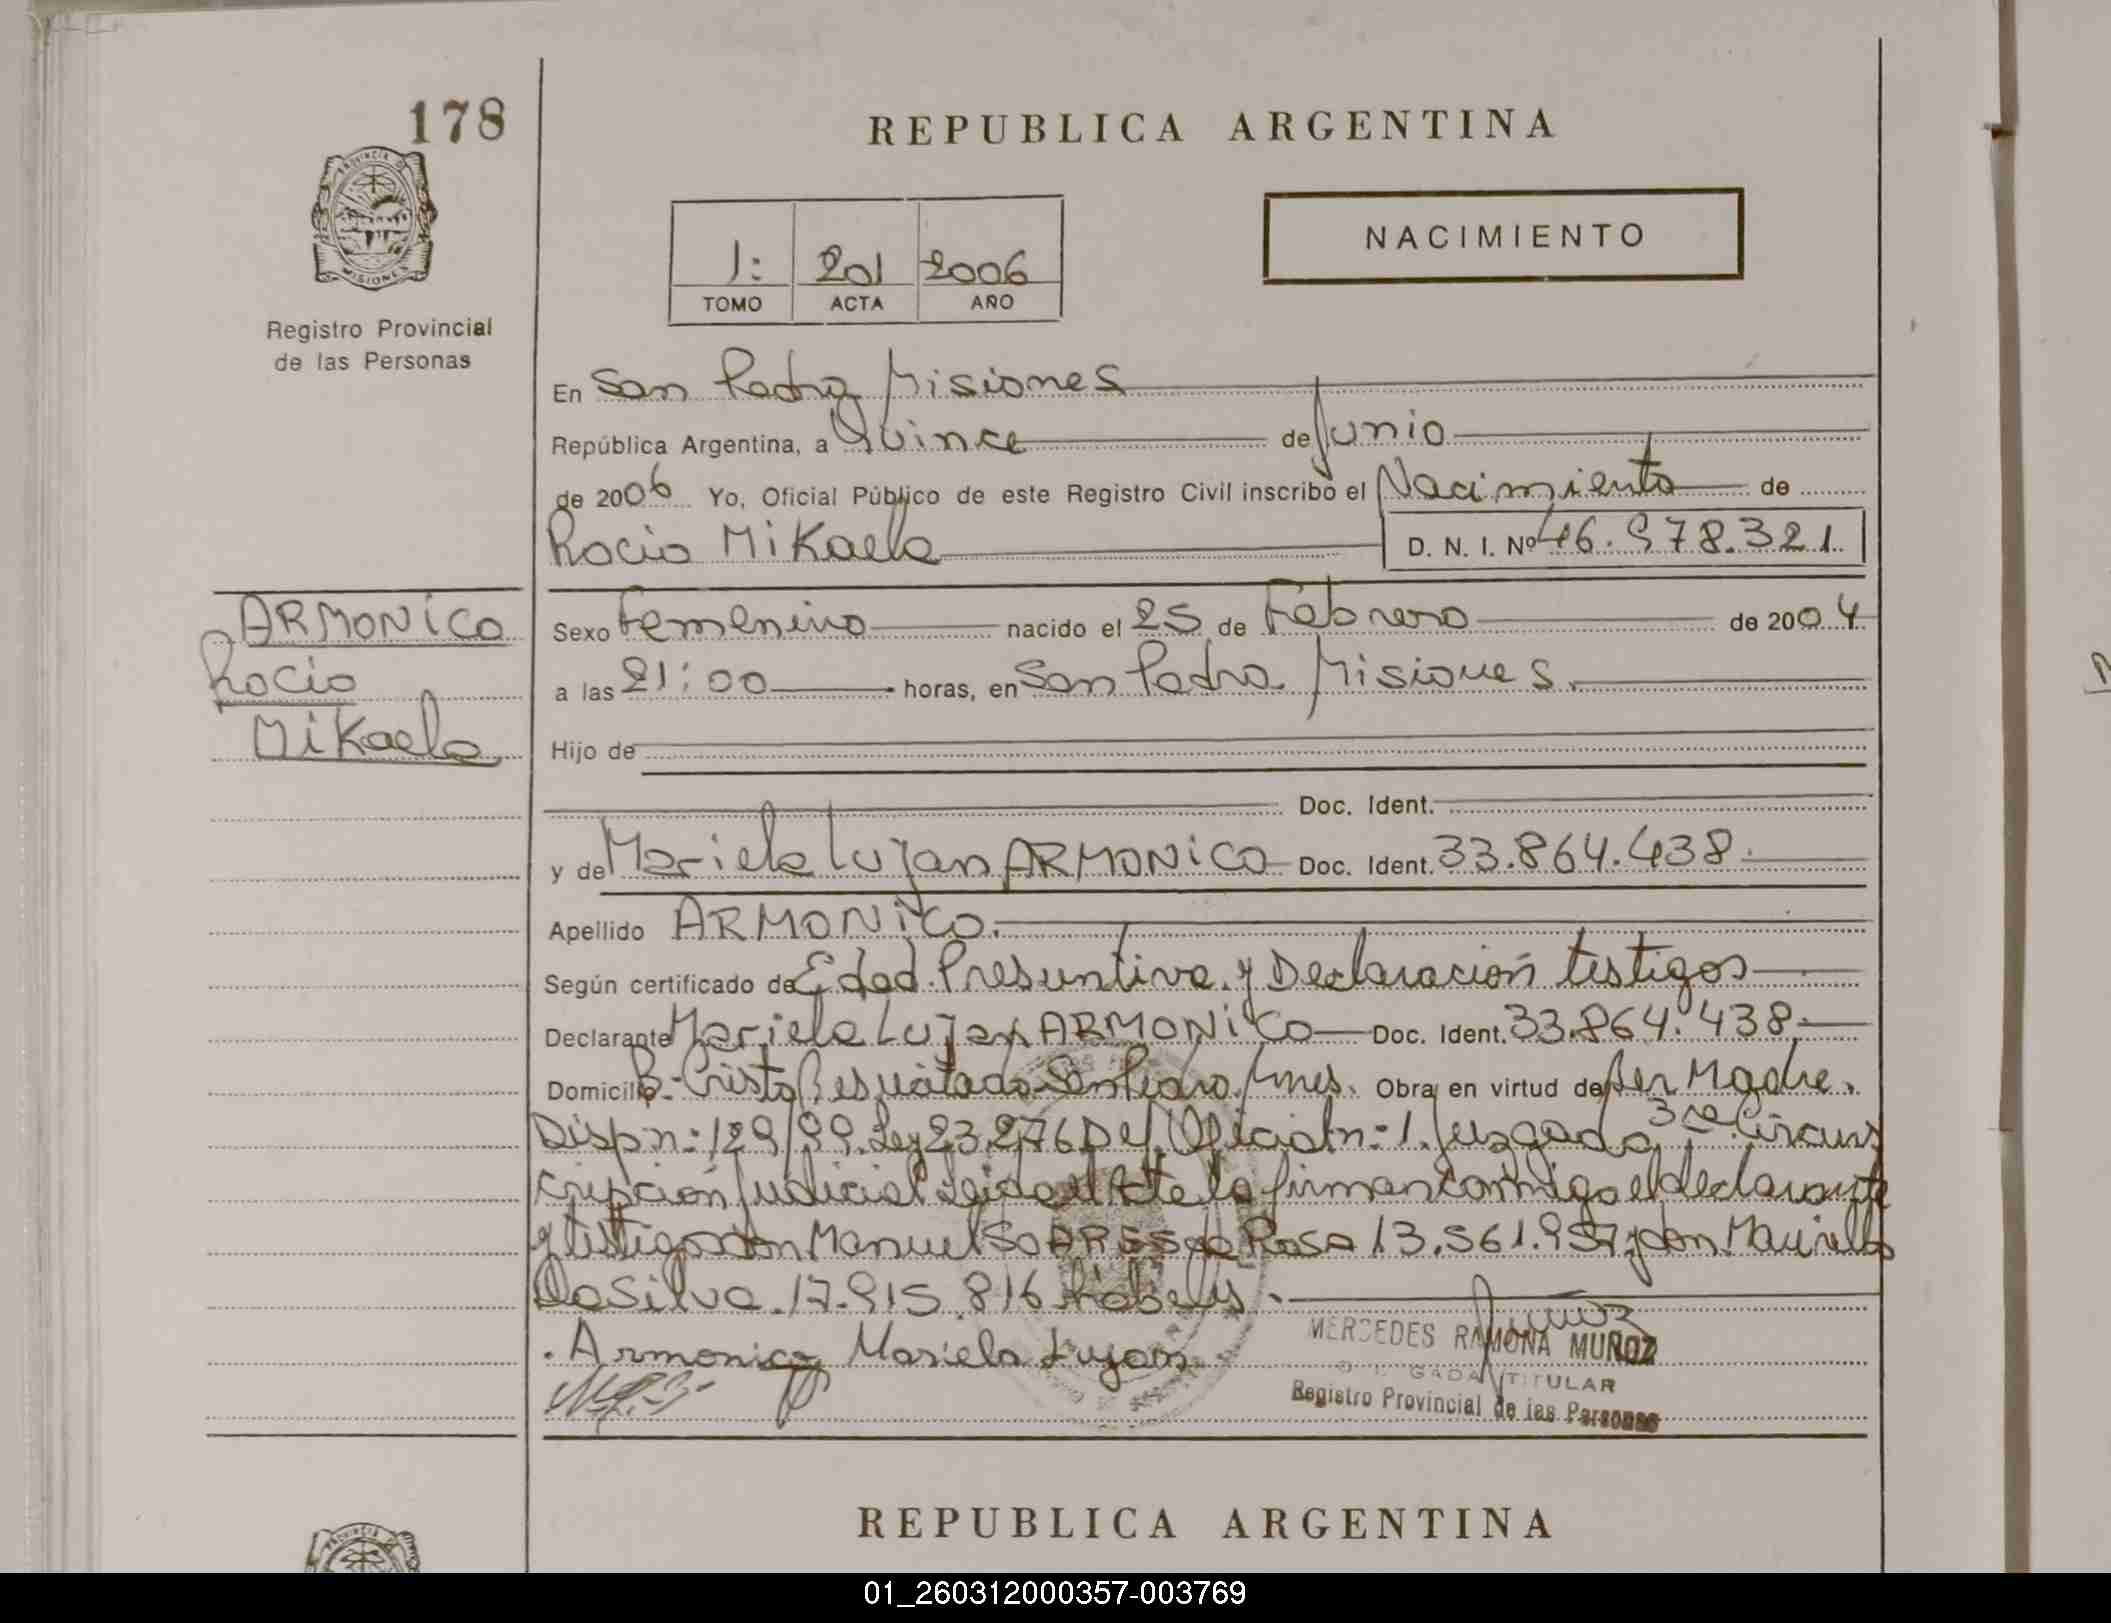 178
REPUBLICA ARGENTINA
NACIMIENTO
1: 201 2006
TOMO ACTA AÑO
PROVINCIA DE
MISIONES
Registro Provincial
de las Personas
En San Pedro Misiones
República Argentina, a Quince de Junio
de 2006 Yo, Oficial Público de este Registro Civil inscribo el Nacimiento de
Rocio Mikaela D. N. I. Nº 46.978.321
ARMONICO
Rocio
Mikaela
Sexo Femenino nacido el 25 de Febrero de 2004
a las 21:00 horas, en San Pedro Misiones.
Hijo de
Doc. Ident.
y de Mariela Lujan ARMONICO Doc. Ident. 33.864.438.
Apellido ARMONICO.
Según certificado de Edad Presuntiva y Declaración testigos
Declarante Mariela Lujan ARMONICO Doc. Ident. 33.864.438.
Domicilio B- Cristo Resucitado San Pedro Mnes. Obra en virtud de Ser Madre.
Disp n: 129/99. Ley 23.276 Def. Oficial n: 1. Juzgado 3ra Circuns
cripción Judicial Leida el Acta la firman conmigo el declarante
y testigos don Manuel SOARES da Rosa 13.561.957 y don
Da Silva. 17.915.816
. Armonico Mariela Lujan
MERCEDES RAMONA MUÑOZ
TITULAR
Registro Provincial de las Personas
REPUBLICA ARGENTINA
01_260312000357-003769